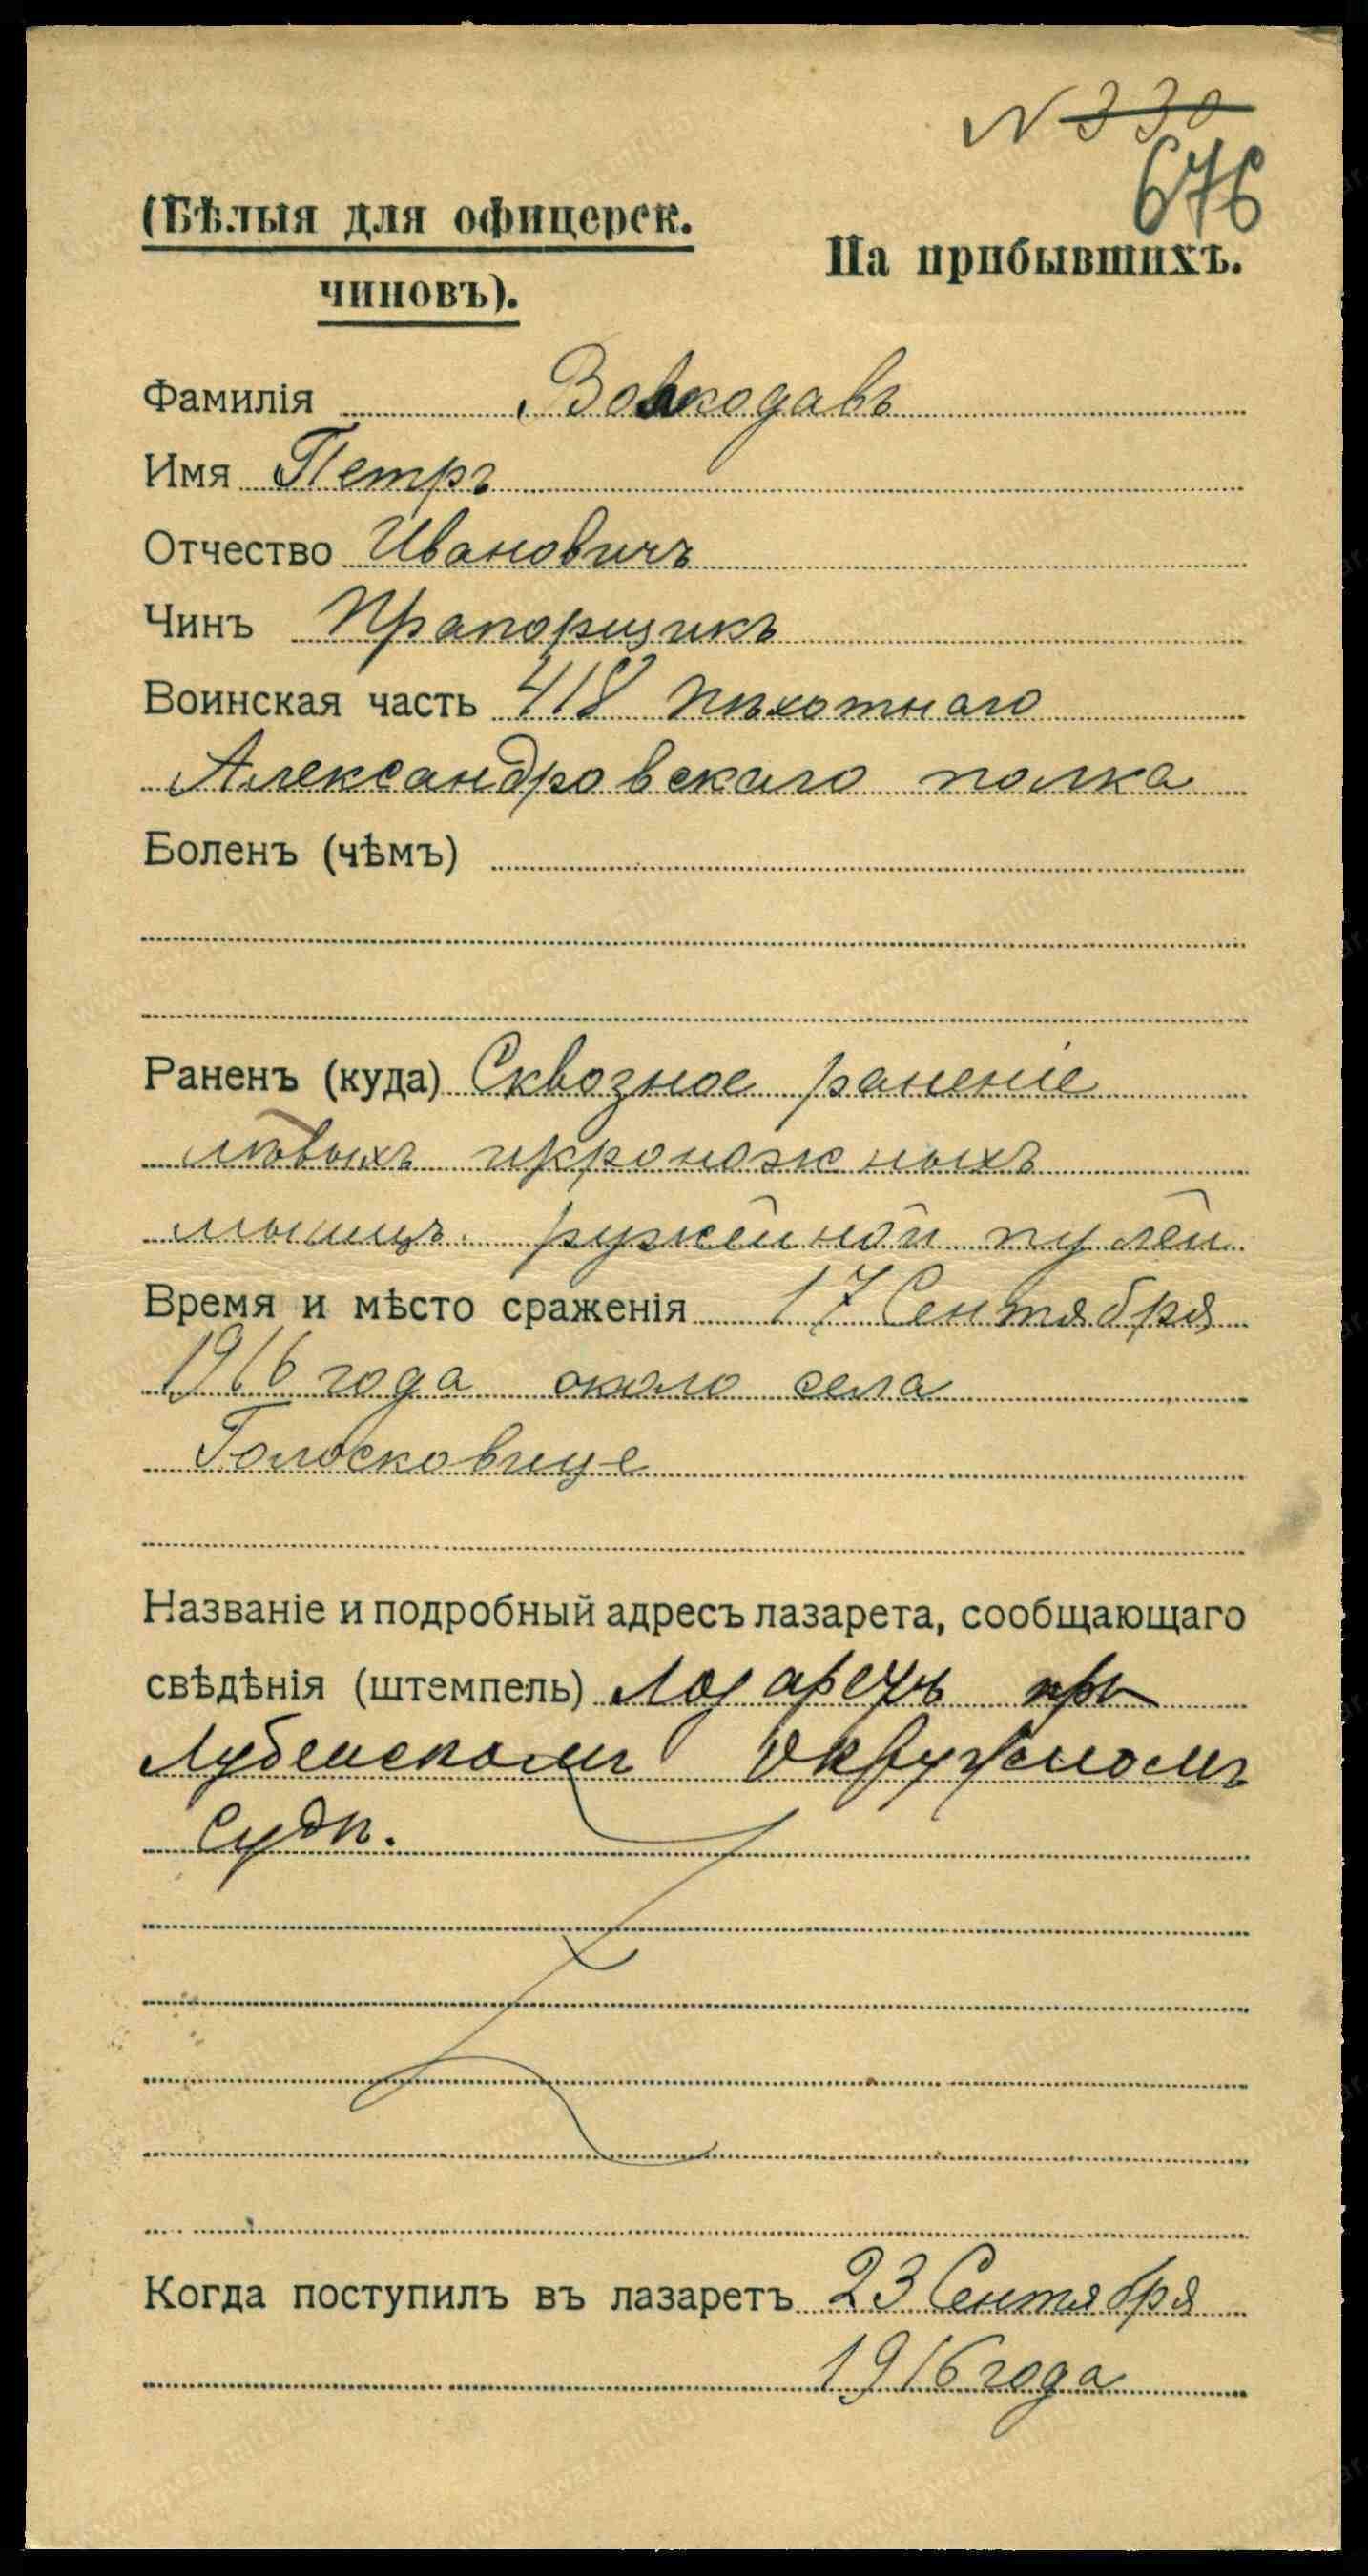 N 330
676
(Бѣлыя для офицерск.
чиновъ).
На прибывшихъ.
Фамилія Вовкодавъ
Имя Петръ
Отчество Ивановичъ
Чинъ Прапорщикъ
Воинская часть 418 пѣхотнаго
Александровскаго полка
Боленъ (чѣмъ)
Раненъ (куда) Сквозное раненіе
лѣвыхъ икроножныхъ
мышцъ ружейной пулей
Время и мѣсто сраженія 17 Сентября
1916 года около села
Голосковице
Названіе и подробный адресъ лазарета, сообщающаго
свѣдѣнія (штемпель) Лазаретъ при
Лубенскомъ Окружномъ
Судѣ.
Когда поступилъ въ лазаретъ 23 Сентября
1916 года